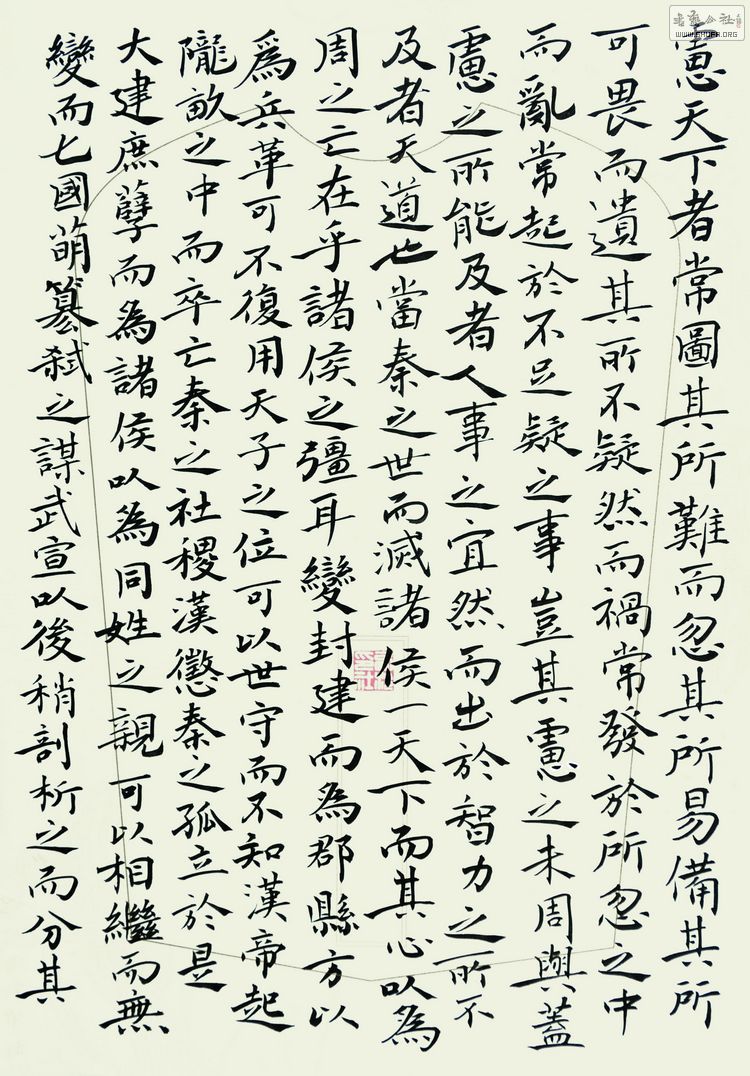 慮天下者常圖其所難而忽其所易備其所
可畏而遺其所不疑然而禍常發於所忽之中
而亂常起於不足疑之事豈其慮之未周與蓋
慮之所能及者人事之宜然而出於智力之所不
及者天道也當秦之世而滅諸侯一天下而其心以為
周之亡在乎諸侯之彊耳變封建而為郡縣方以
為兵革可不復用天子之位可以世守而不知漢帝起
隴畝之中而卒亡秦之社稷漢懲秦之孤立於是
大建庶孽而為諸侯以為同姓之親可以相繼而無
變而七國萌篡弒之謀武宣以後稍剖析之而分其
WWW.SHUFA.ORG